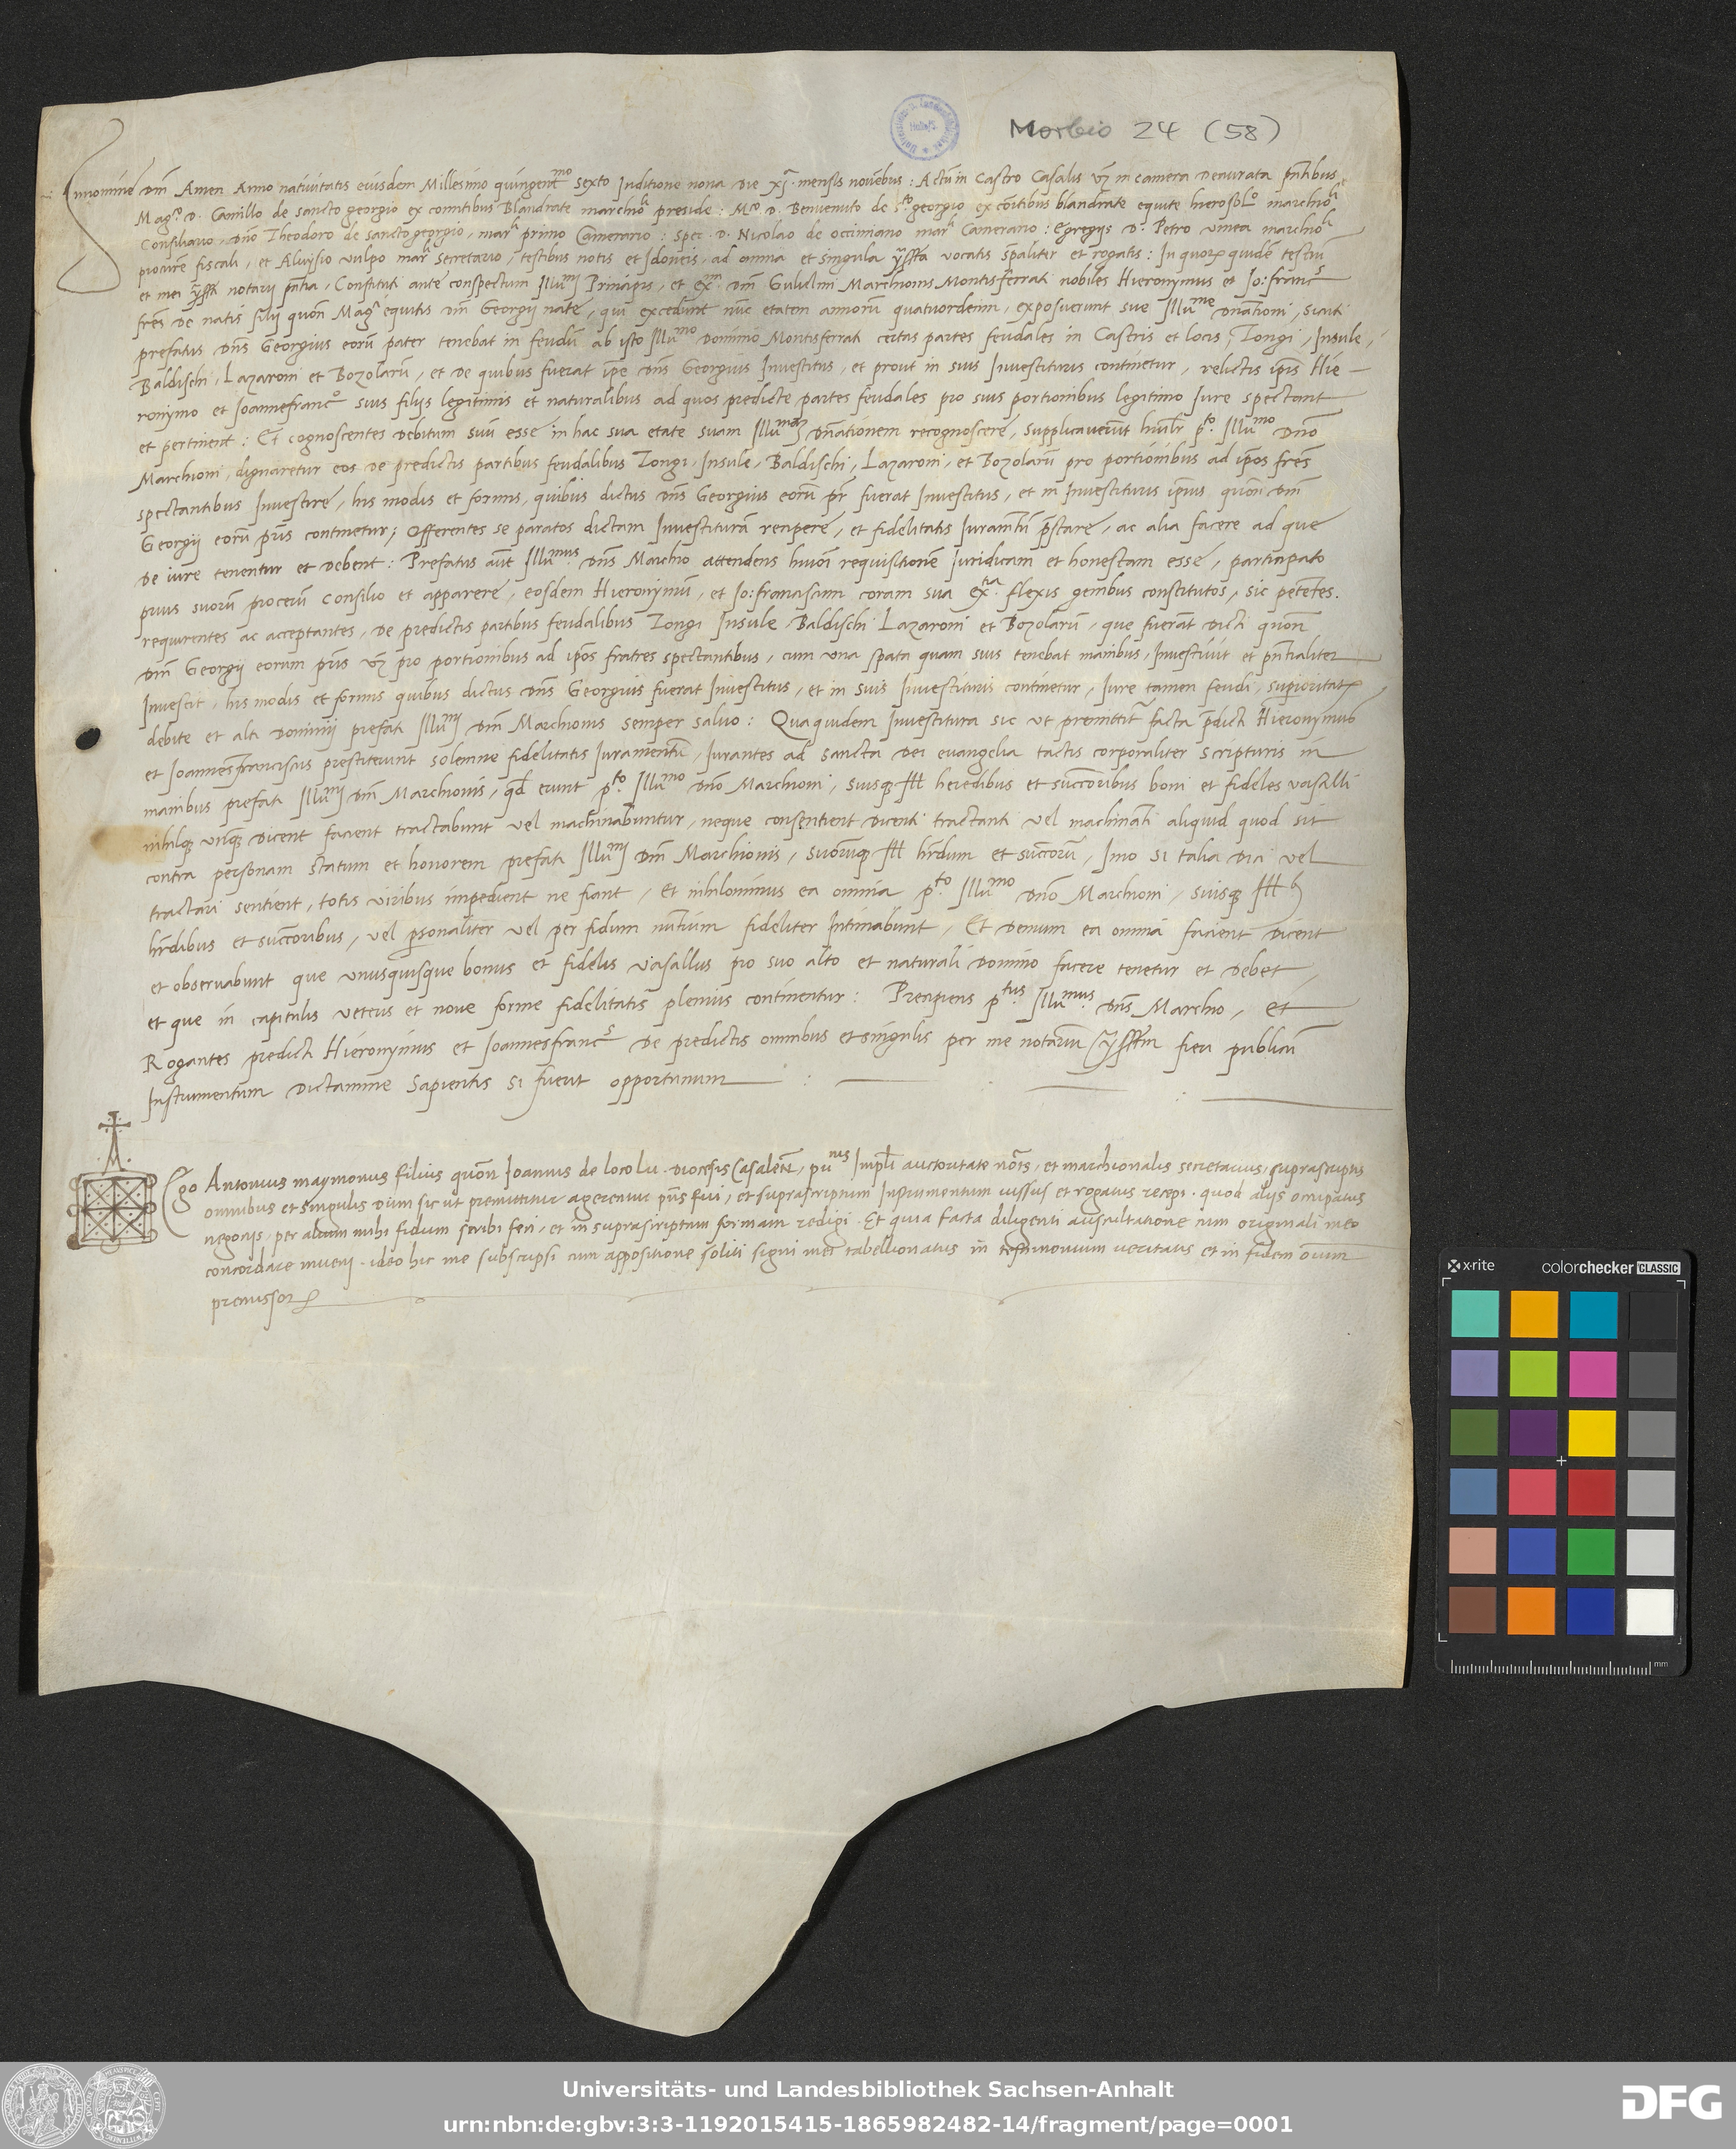 Morbio 24 (58)
Innomine dni Amen Anno nativitatis eiusdem Millesimo quingentmo sexto Inditione nona die xj. mensis novebus: Actu in Castro Casalis vz in camera deaurata pntibus,
Magco. D. Camillo de sancto georgio ex comitibus Blandrate marchioli preside: Mco. D. Benvenuto de scto georgio ex comitibus blandrate equite hierosolo marchioli
Consiliario, dno Theodoro de sancto georgio, marli primo Camerario: Spec. D. Nicolao de occimiano marli Camerario: Egregijs D. Petro vmea marchioli
procure fiscali, et Aluysio vulpo marli secretario, testibus notis et Idoneis, ad omnia et singula vocatis spaliter et rogatis: In quorz quidem testiu
et mei notarij pntia, Constituti ante conspectum Illumi Principis, et exmi. dni Gulielmi Marchionis Montisferrati nobiles Hieronymus et Jo: francs
fres de natis filij quon Magci equitis dni Georgij nate, qui excedunt nuc etaten annoru quatuordecim, exposuerunt sue Illume dnationi, sicuti
prefatus dns Georgius eoru pater tenebat in feudu ab isto Illumo Domino Montisferrati certas partes feudales in Castris et locis, Tongi, Insule,
Baldischi, Lazaroni et Bozolaru, et de quibus fuerat ipe dns Georgius Investitus, et prout in suis Investituris continetur, relictis ipis Hie-
ronymo et Joannefranco suis filijs legitimis et naturalibus ad quos predicte partes feudales pro suis portionibus legitimo Jure spectant
et pertinent: Et cognoscentes debitum suu esse in hac sua etate suam Illumaz dnationem recognoscere, supplicaverut humlr pto. Illumo dno
Marchioni, dignaretur eos de predictis partibus feudalibus Tongi, Insule, Baldischi, Lazaroni, et Bozolaru pro portionibus ad ipos fres
spectantibus Investire, his modis et formis, quibus dictus dns Georgius eoru pr fuerat Investitus, et in Investituris ipius quon dni
Georgij eoru pris continetur; Offerentes se paratos dictam Investitura recipere, et fidelitatis Juramtu prestare, ac alia facere ad que
de iure tenentur et debent: Prefatus aut Illumus. dns Marchio attendens huioi requisitione Juridicam et honestam esse, participato
prius suoru proceru consilio et apparere, eosdem Hieronymu, et Jo: franciscum coram sua extia. flexis genibus constitutos, sic petentes.
requirentes ac acceptantes, de predictis partibus feudalibus Tongi Insule Baldischi Lazaroni et Bozolaru, que fuerat dicti quon
dni Georgij eorum pris vz pro portionibus ad ipos fratres spectantibus, cum vna spata quam suis tenebat manibus, Investivit et pntialiter
Investit, his modis et formis quibus dictus dns Georgius fuerat Investitus, et in suis Investituris continetur, Jure tamen feudi, superioritatz
debite et alti dominij prefati Illumi dni Marchionis semper salvo: Qua quidem Investitura sic ut premittit facta predicti Hieronymus
et Joannesfranciscus prestiterunt solenne fidelitatis Juramentu, Jurantes ad sancta dei evangelia tactis corporaliter scripturis in
manibus prefati Illumi dni Marchionis, qd erunt pto. Illumo dno Marchioni, suisqz Ill heredibus et succoribus boni et fideles vasalli
nihilqz unqz dicent facient tractabunt vel machinabuntur, neque consentient dicenti tractanti vel machinati aliquid quod sit
contra personam statum et honorem prefati Illumi dni Marchionis, suorumqz Ill hrdum et succoru, Imo si talia dici vel
tractari sentient, totis viribus impedient ne fiant, Et nihilominus ea omnia pto Illumo dno Marchioni, suisqz Ill
hrdibus et succoribus, vel personaliter vel per fidum nutium fideliter Intimabunt, Et demum ea omnia facient dicent
et observabunt que unusquisque bonus et fidelis vasallus pro suo alto et naturali domino facere tenetur et debet,
et que in capitulis veteris et nove forme fidelitatis plenius continentur: Precipiens ptus. Illumus. dns Marchio, et
Rogantes predicti Hieronymus et Joannesfrancs de predictis omnibus et singulis per me notariu fieri publicu
Instrumentum dictamine sapientis si fuerit opportunum
Ego Antonius maymonus filius quon Joannis de loco lu diocesis Casalen, pu nus Impli auctoritate nots, et marchionalis secretarius, suprascriptis
omnibus et singulis dum sic ut premittitur agerentur pns fui, et suprascriptum Instrumentum iussus et rogatus recepi. quod alijs occupatus
negocijs, per alium mihi fidum scribi feci, et in suprascriptum formam redigi. Et quia facta diligenti auscultatione cum originali meo
concordare inveni. ideo hic me subscripsi cum appositione soliti signi mei tabellionatus in testimonium veritatis et in fidem oium
premissorz
x-rite colorchecker CLASSIC
mm
Universitäts- und Landesbibliothek Sachsen-Anhalt
urn:nbn:de:gbv:3:3-1192015415-1865982482-14/fragment/page=0001
DFG